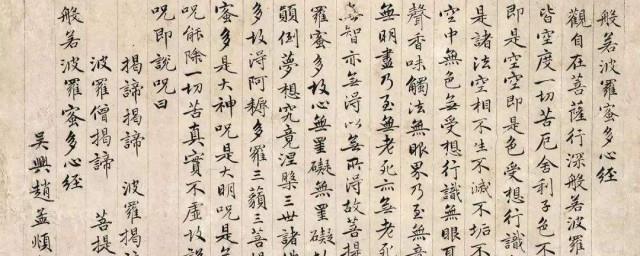 般若波羅蜜多心經
觀自在菩薩行深般若波羅
皆空度一切苦厄舍利子色不
即是空空即是色受想行識
是諸法空相不生不滅不垢不
空中無色無受想行識無眼耳
聲香味觸法無眼界乃至無意
無明盡乃至無老死亦無老死
無智亦無得以無所得故菩提
羅蜜多故心無罣礙無罣礙
顛倒夢想究竟涅槃三世諸
多故得阿耨多羅三藐三菩提
蜜多是大神呪是大明呪是無
呪能除一切苦真實不虛故說
呪即說呪曰
揭諦揭諦 波羅揭諦
波羅僧揭諦 菩提
般若波羅蜜多心經
吳興趙孟頫